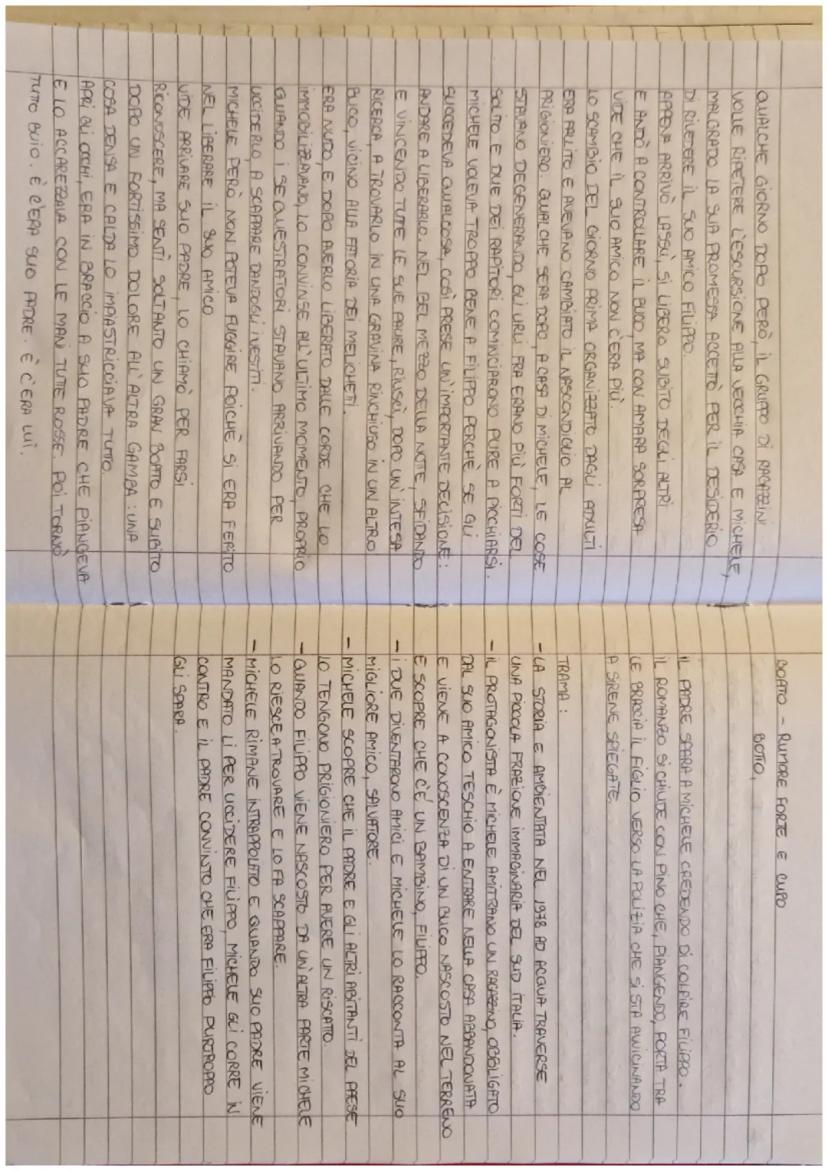 QUALCHE GIORNO DOPO PERÒ, IL GRUPPO DI RAGAZZINI
VOLLE RIPETERE L'ESCURSIONE ALLA VECCHIA CASA E MICHELE,
MALGRADO LA SUA PROMESSA ACCETTÒ PER IL DESIDERIO
DI RIVEDERE IL SUO AMICO FILIPPO.
APPENA ARRIVÒ LASSÙ, SI LIBERO SUBITO DEGLI ALTRI
E ANDÒ A CONTROLLARE IL BUCO, MA CON AMARA SORPRESA
VIDE CHE IL SUO AMICO NON C'ERA PIÙ.
LO SCAMBIO DEL GIORNO PRIMA ORGANIZZATO DAGLI ADULTI
ERA FALLITO E AVEVANO CAMBIATO IL NASCONDIGLIO AL
PRIGIONIERO. QUALCHE SERA DOPO A CASA DI MICHELE, LE COSE
STAVANO DEGENERANDO, GLI URLI FRA ERANO PIÙ FORTI DEL
SOLITO E DUE DEI RAPITORI COMINCIARONO PURE A PICCHIARSI.
MICHELE VOLEVA TROPPO BENE A FILIPPO PERCHÈ SE GLI
SUCCEDEVA QUALCOSA, COSÌ PRESE UN'IMPORTANTE DECISIONE:
ANDARE A LIBERARLO. NEL BEL MEZZO DELLA NOTTE, SFIDANDO
E VINCENDO TUTTE LE SUE PAURE, RIUSCÌ, DOPO UN'INTESA
RICERCA, A TROVARLO IN UNA GRAVINA RINCHIUSO IN UN ALTRO
BUCO, VICINO ALLA FATTORIA DEI MELICHETI.
ERA NUDO, E DOPO AVERLO LIBERATO DALLE CORDE CHE LO
IMMOBILIZZAVANO, LO CONVINSE ALL'ULTIMO MOMENTO, PROPRIO
QUANDO I SEQUESTRATORI STAVANO ARRIVANDO PER
UCCIDERLO, A SCAPPARE DANDOGLI I VESTITI.
MICHELE PERÒ NON POTEVA FUGGIRE POICHÈ SI ERA FERITO
NEL LIBERARE IL SUO AMICO
VIDE ARRIVARE SUO PADRE, LO CHIAMÒ PER FARSI
RICONOSCERE, MA SENTÌ SOLTANTO UN GRAN BOATO E SUBITO
DOPO UN FORTISSIMO DOLORE ALL'ALTRA GAMBA: UNA
COSA DENSA E CALDA LO IMPIASTRICCIAVA TUTTO.
APRÌ GLI OCCHI, ERA IN BRACCIO A SUO PADRE CHE PIANGEVA
E LO ACCAREZZAVA CON LE MANI TUTTE ROSSE. POI TORNÒ
TUTTO BUIO. E C'ERA SUO PADRE. E C'ERA LUI.
BOATO - RUMORE FORTE E CUPO
BOTTO,
IL PADRE SPARA A MICHELE CREDENDO DI COLPIRE FILIPPO.
IL ROMANZO SI CHIUDE CON PINO CHE, PIANGENDO, PORTA TRA
LE BRACCIA IL FIGLIO VERSO LA POLIZIA CHE SI STA AVVICINANDO
A SIRENE SPIEGATE.
TRAMA:
- LA STORIA E AMBIENTATA NEL 1978 AD ACQUA TRAVERSE
UNA PICCOLA FRAZIONE IMMAGINARIA DEL SUD ITALIA.
- IL PROTAGONISTA È MICHELE AMITRANO UN RAGAZZINO, OBBLIGATO
DAL SUO AMICO TESCHIO A ENTRARE NELLA CASA ABBANDONATA
E VIENE A CONOSCENZA DI UN BUCO NASCOSTO NEL TERRENO
E SCOPRE CHE C'È UN BAMBINO, FILIPPO.
- I DUE DIVENTARONO AMICI E MICHELE LO RACCONTA AL SUO
MIGLIORE AMICO, SALVATORE.
- MICHELE SCOPRE CHE IL PADRE E GLI ALTRI ABITANTI DEL PAESE
LO TENGONO PRIGIONIERO PER AVERE UN RISCATTO.
- QUANDO FILIPPO VIENE NASCOSTO DA UN'ALTRA PARTE MICHELE
LO RIESCE A TROVARE E LO FA SCAPPARE.
- MICHELE RIMANE INTRAPPOLATO E QUANDO SUO PADRE VIENE
MANDATO LÌ PER UCCIDERE FILIPPO, MICHELE GLI CORRE IN
CONTRO E IL PADRE CONVINTO CHE ERA FILIPPO PURTROPPO
GLI SPARA.